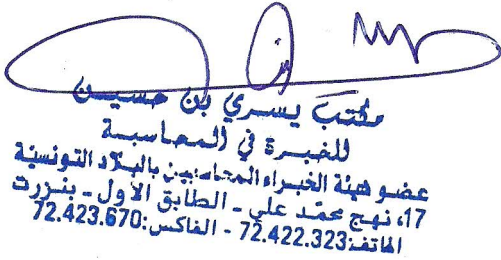 مكتب يسري بن حسين
للخبرة في المحاسبة
عضو هيئة الخبراء المحاسبين بالبلاد التونسية
17، نهج محمد علي - الطابق الاول - بنزرت
الهاتف:72.422.323 - الفاكس:72.423.670